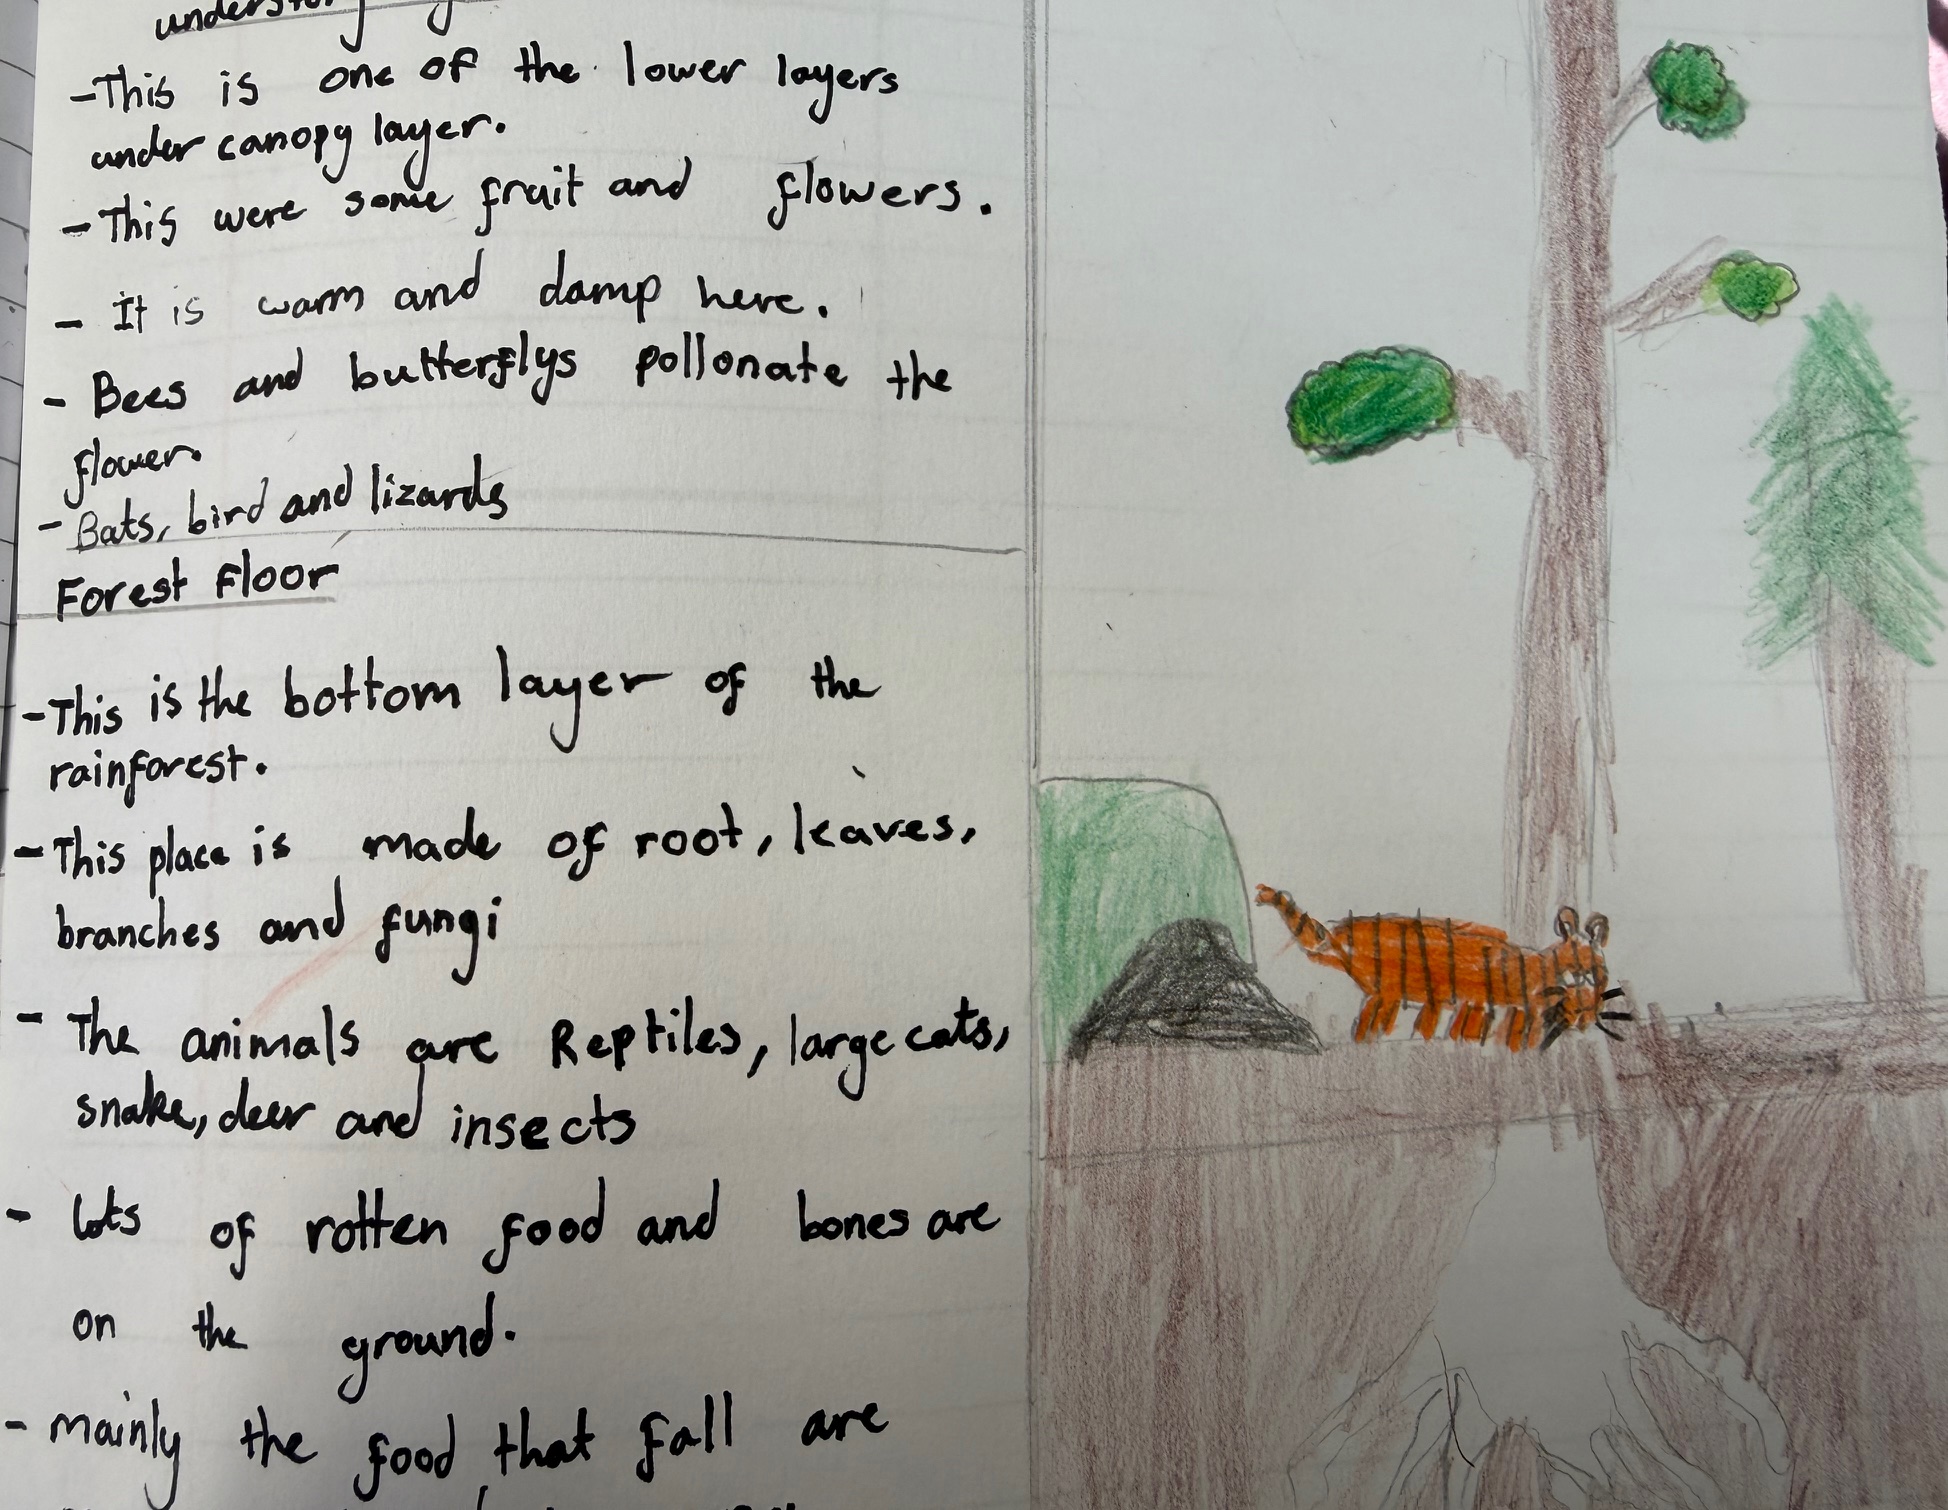 understory
-This is one of the lower layers
under canopy layer.
-This were some fruit and flowers.
- It is warm and damp here.
- Bees and butterflys pollonate the
flower.
- Bats, bird and lizards
Forest Floor
-This is the bottom layer of the
rainforest.
-This place is made of root, leaves,
branches and fungi
- The animals are Reptiles, large cats,
snake, deer and insects
- lots of rotten food and bones are
on the ground.
- mainly the food that fall are